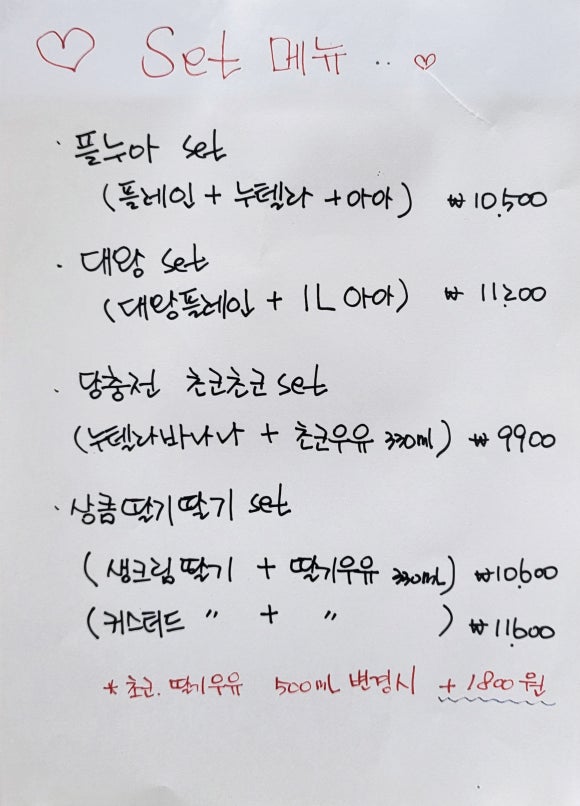 ♡ Set 메뉴 .. ♡
· 플누아 set
(플레인 + 누텔라 + 아아) ₩ 10,500
· 대왕 set
(대왕플레인 + 1L 아아) ₩ 11,200
· 당충전 초코초코 set
(누텔라바나나 + 초코우유 330ml) ₩ 9900
· 상큼딸기딸기 set
(생크림딸기 + 딸기우유 330mL) ₩10,600
(커스터드 〃 + 〃 ) ₩ 11,600
* 초코. 딸기우유 500mL 변경시 + 1800원